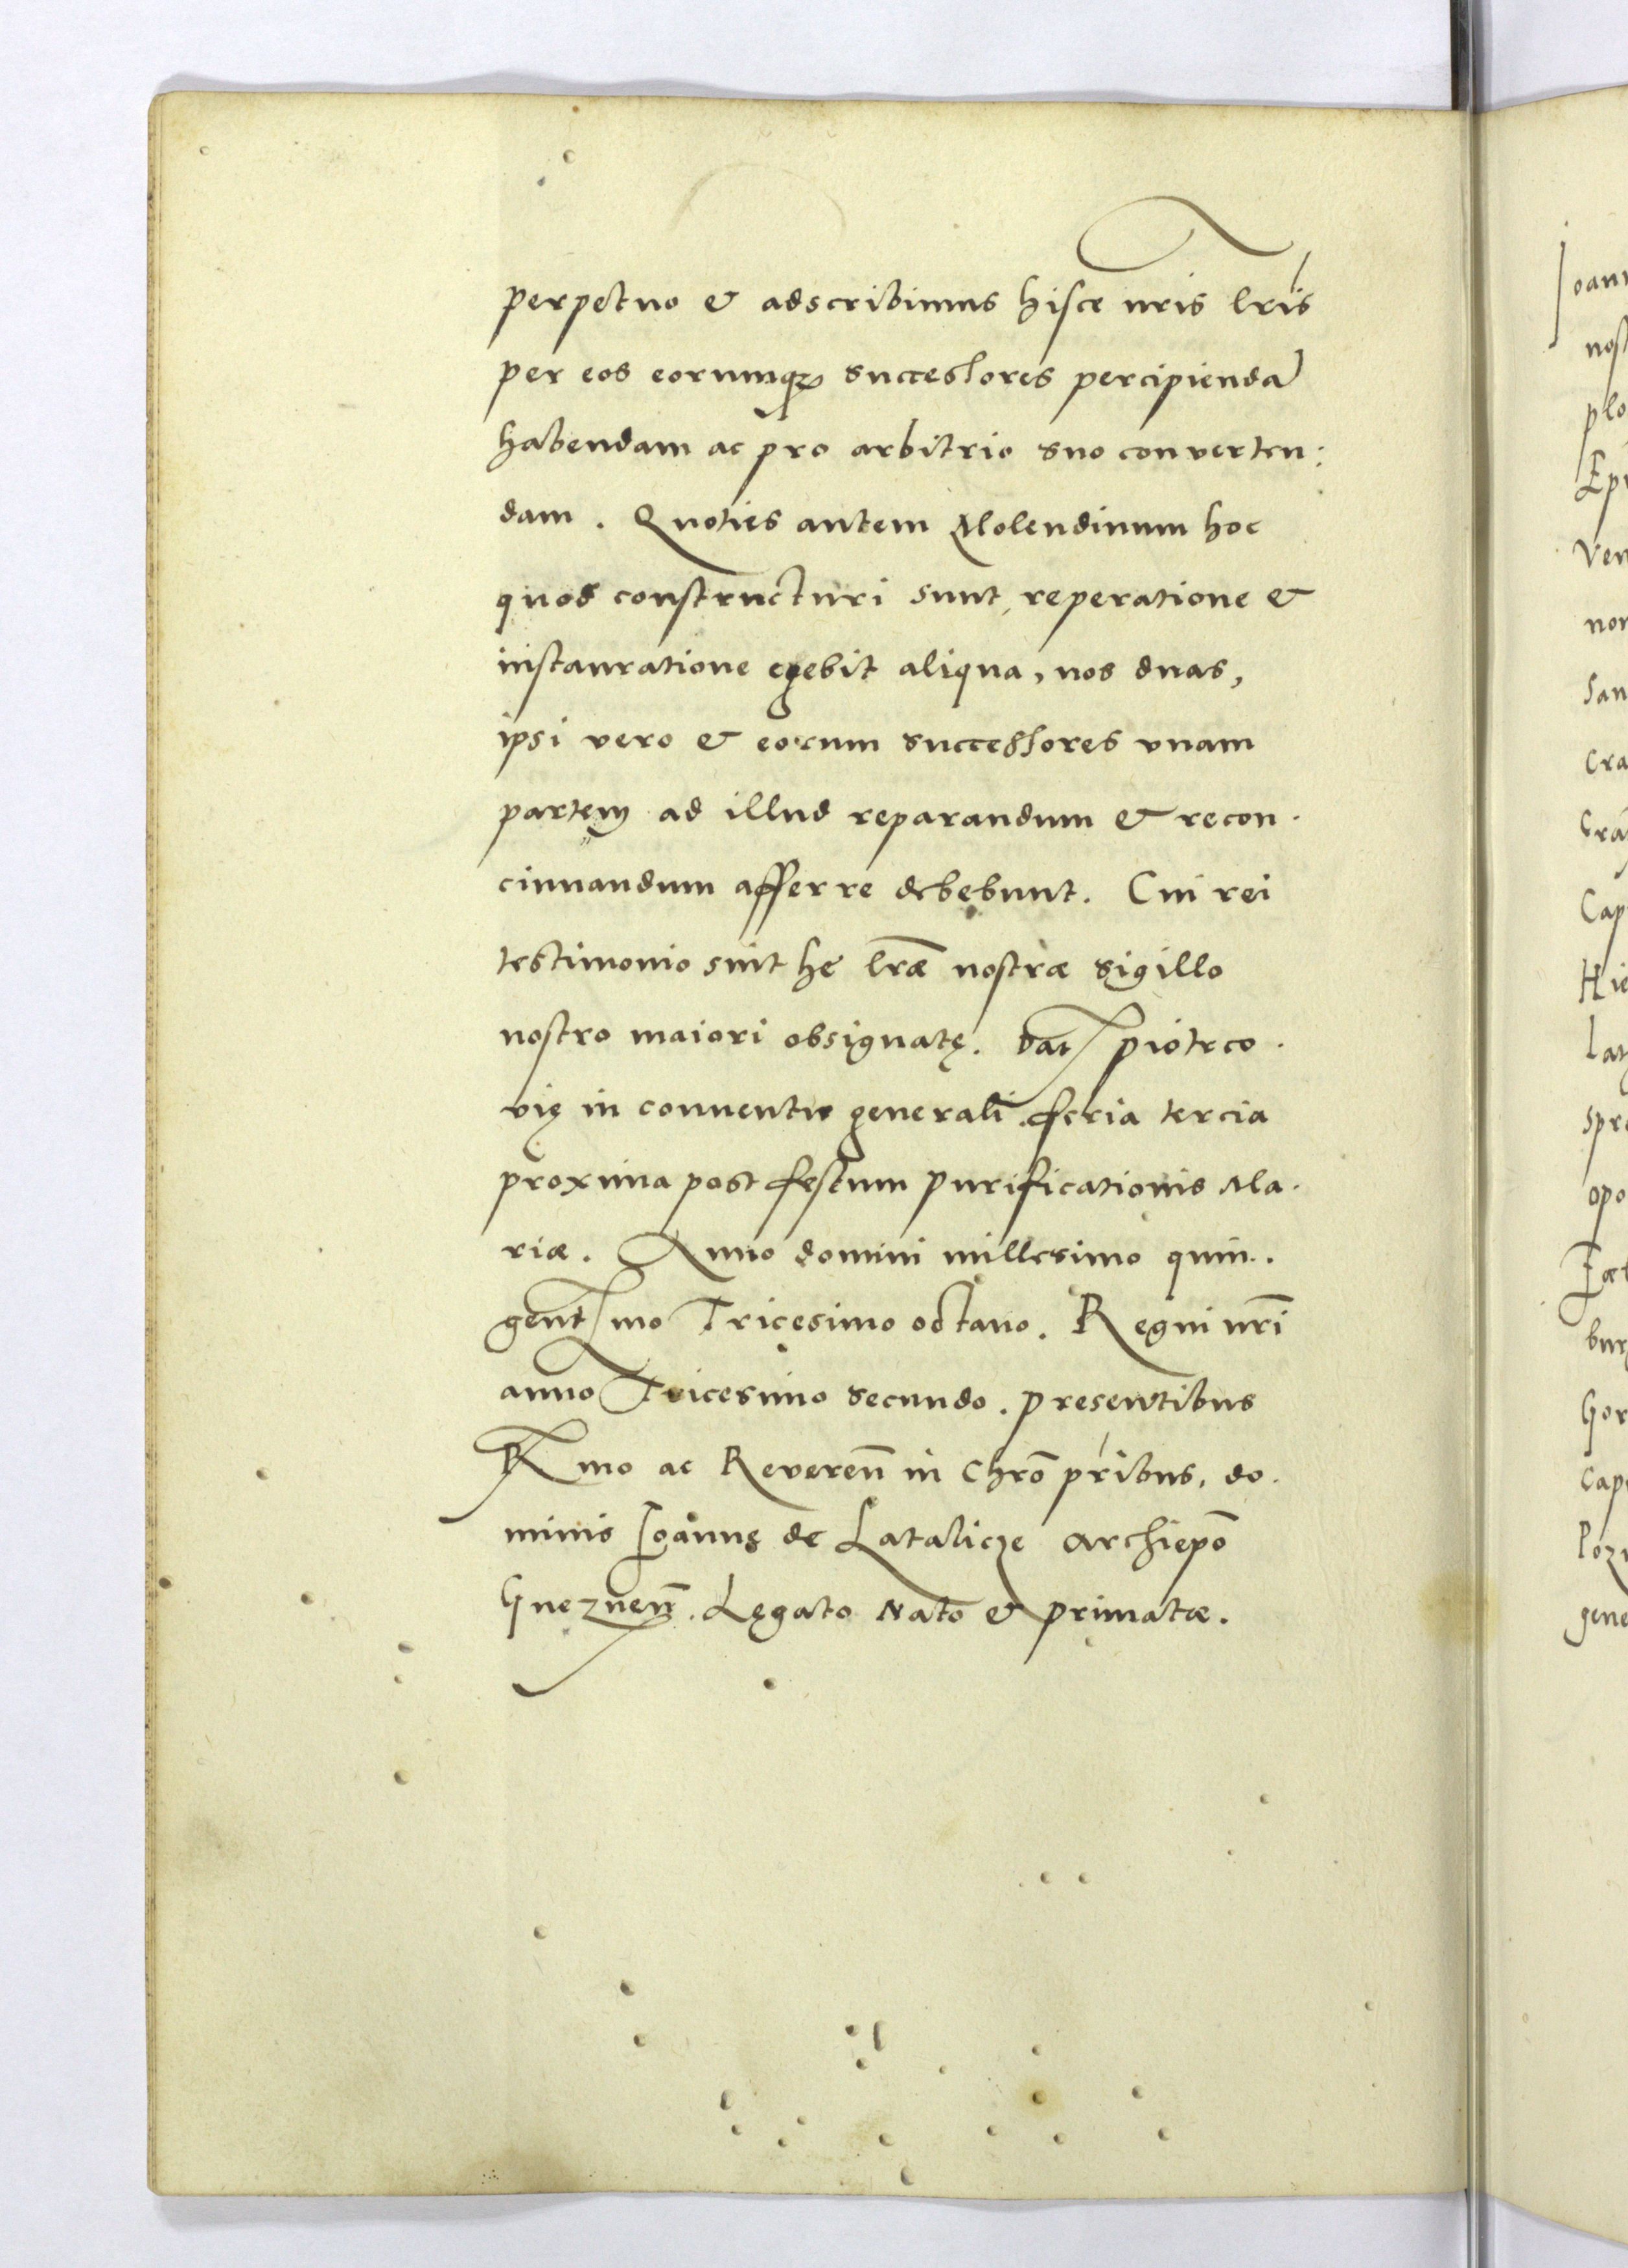 perpetuo & adscribimus hisce nr̃is lr̃is
per eos eorumqꝫ successores percipiendā
habendam ac pro arbitrio suo converten:
dam. Quoties autem Molendinum hoc
quod constructuri sunt, reperatione &
instauratione egebit aliqua, nos duas,
ipsi vero & eorum successores vnam
partem ad illud reparandum & recon.
cinnandum afferre debebunt. Cui rei
testimonio sint he lr̃æ nostræ sigillo
nostro maiori obsignatę. Dat Piotrco.
vię in conuentu generali. feria tercia
proxima post festum Purificationis Ma.
riæ. Anno domini millesimo quin.
gentmo Tricesimo octauo. Regni nr̃i
anno Tricesimo secundo. Presentibus
Rmo ac Reveren̄ in Chr̄o pr̄ibus, do.
minis Ioanne de Latalicze Archiep̄o
Gneznen̄. Legato Nato & Primatæ.
Ioann
nost
plo
Ep
Ven
non
San
Cra
Cra
Cap
Hie
lat
spr
opo
bur
Gor
cap
Poz
gene